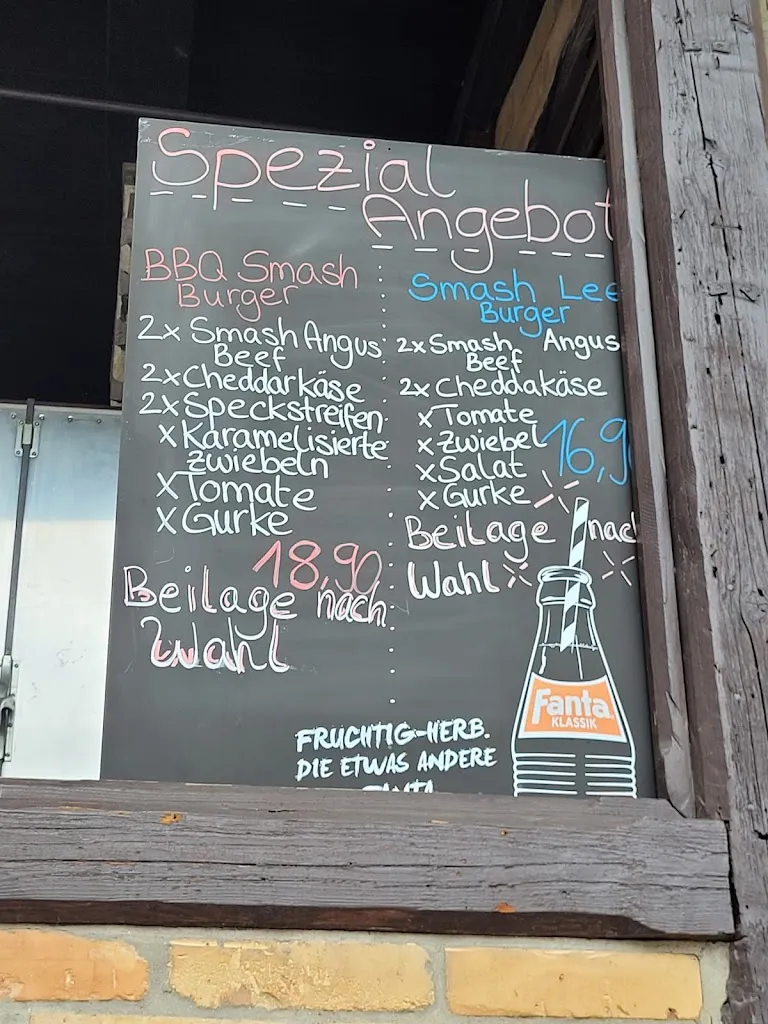 Spezial
Angebot
BBQ Smash
Burger
2x Smash Angus
Beef
2x Cheddarkäse
2x Speckstreifen
x Karamelisierte
zwiebeln
x Tomate
x Gurke
18,90
Beilage nach
Wahl
Smash Lee
Burger
2x Smash Angus
Beef
2x Cheddakäse
x Tomate
x Zwiebel
x Salat
x Gurke
16,9
Beilage nach
Wahl
Fanta
KLASSIK
FRUCHTIG-HERB.
DIE ETWAS ANDERE